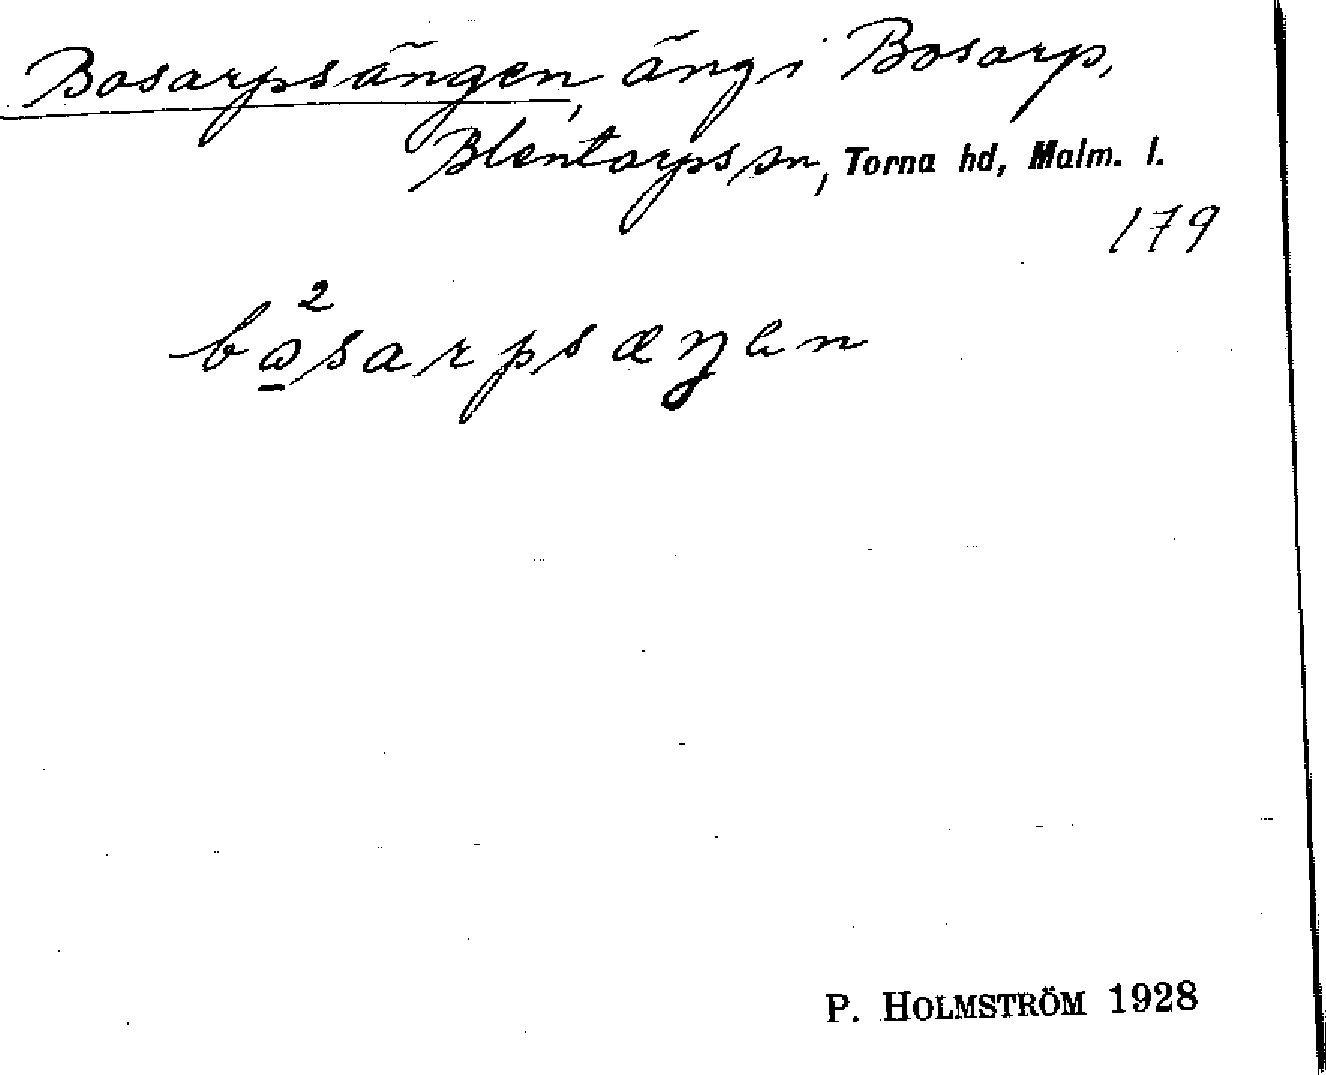 Bosarpsängen, äng i Bosarp,
Blentarps sn, Torna hd, Malm. l.
179
bo̲²sarpsæŋən
P. HOLMSTRÖM 1928